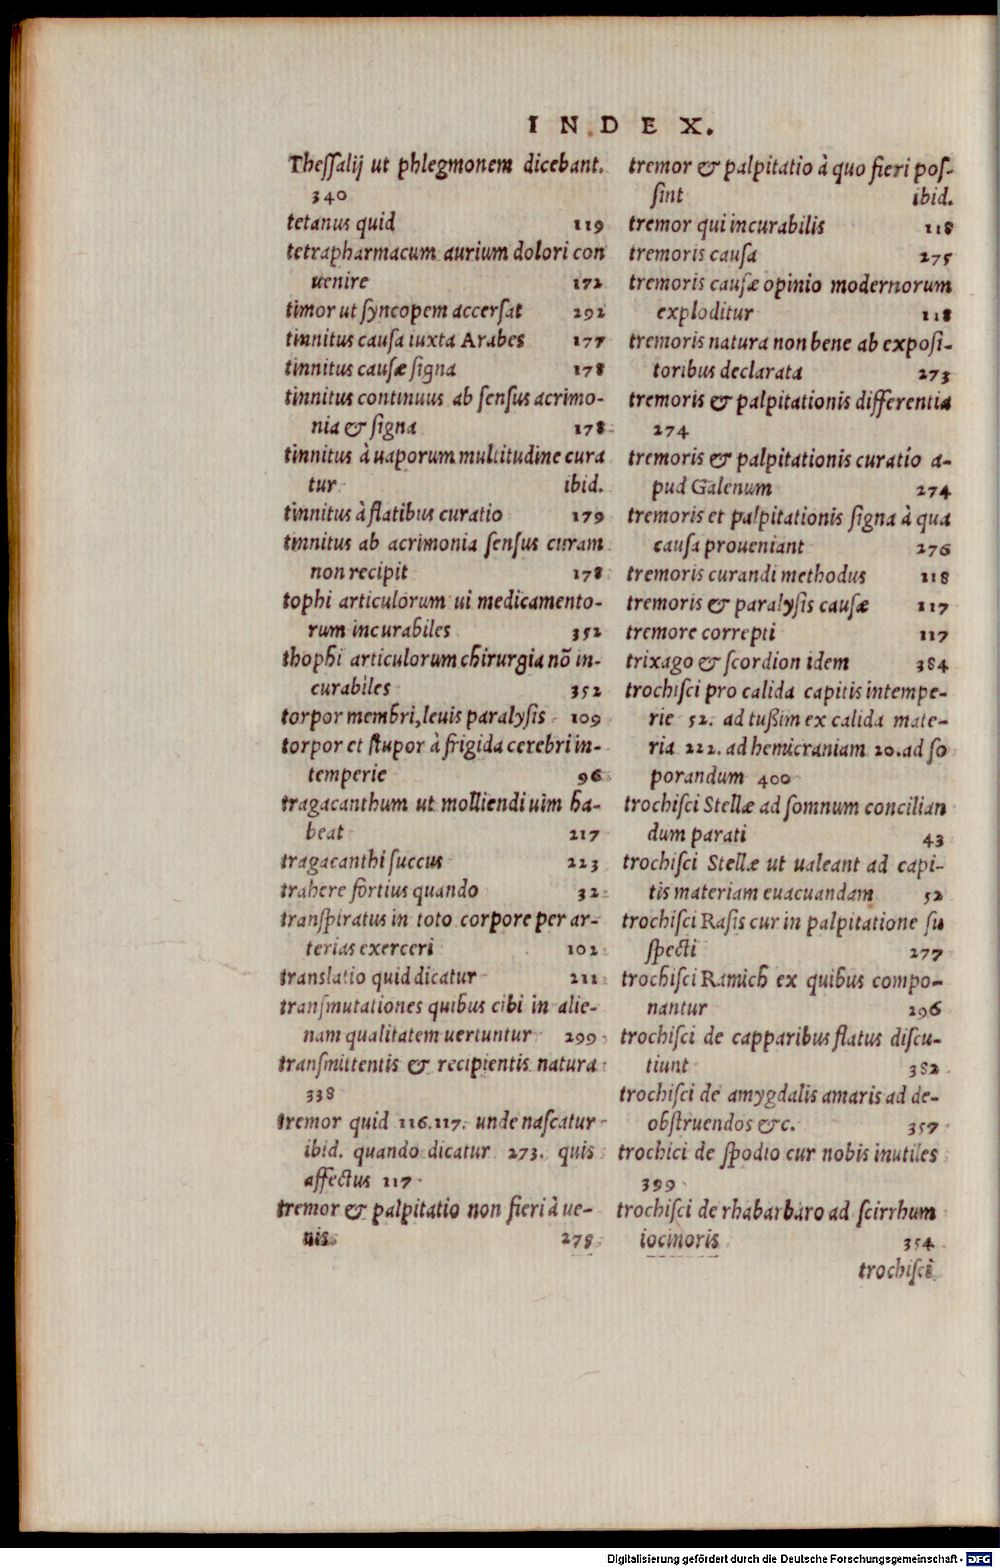 INDEX.
Thessalij ut phlegmonem dicebant.
340
tetanus quid 119
tetrapharmacum aurium dolori con
uenire 172
timor ut syncopem accersat 292
tinnitus causa iuxta Arabes 177
tinnitus causæ signa 178
tinnitus continuus ab sensus acrimo-
nia & signa 178
tinnitus à uaporum multitudine cura
tur ibid.
tinnitus à flatibus curatio 179
tinnitus ab acrimonia sensus curam
non recipit 178
tophi articulorum ui medicamento-
rum incurabiles 352
thophi articulorum chirurgia nõ in-
curabiles 352
torpor membri, leuis paralysis 109
torpor et stupor à frigida cerebri in-
temperie 96
tragacanthum ut molliendi uim ha-
beat 217
tragacanthi succus 223
trahere fortius quando 32
transpiratus in toto corpore per ar-
terias exerceri 102
translatio quid dicatur 211
transmutationes quibus cibi in alie-
nam qualitatem uertuntur 299
transmittentis & recipientis natura
338
tremor quid 116.117. unde nascatur
ibid. quando dicatur 273. quis
affectus 117
tremor & palpitatio non fieri à ue-
nis 278
tremor & palpitatio à quo fieri pos-
sint ibid.
tremor qui incurabilis 118
tremoris causa 275
tremoris causæ opinio modernorum
exploditur 118
tremoris natura non bene ab exposi-
toribus declarata 273
tremoris & palpitationis differentia
274
tremoris & palpitationis curatio a-
pud Galenum 274
tremoris et palpitationis signa à qua
causa proueniant 276
tremoris curandi methodus 118
tremoris & paralysis causæ 117
tremore correpti 117
trixago & scordion idem 384
trochisci pro calida capitis intempe-
rie 52. ad tußim ex calida mate-
ria 222. ad hemicraniam 20. ad so
porandum 400
trochisci Stellæ ad somnum concilian
dum parati 43
trochisci Stellæ ut ualeant ad capi-
tis materiam euacuandam 52
trochisci Rasis cur in palpitatione su
specti 277
trochisci Ramich ex quibus compo-
nantur 296
trochisci de capparibus flatus discu-
tiunt 382
trochisci de amygdalis amaris ad de-
obstruendos &c. 357
trochici de spodio cur nobis inutiles
399
trochisci de rhabarbaro ad scirrhum
iocinoris 354
trochisci
Digitalisierung gefördert durch die Deutsche Forschungsgemeinschaft - DFG